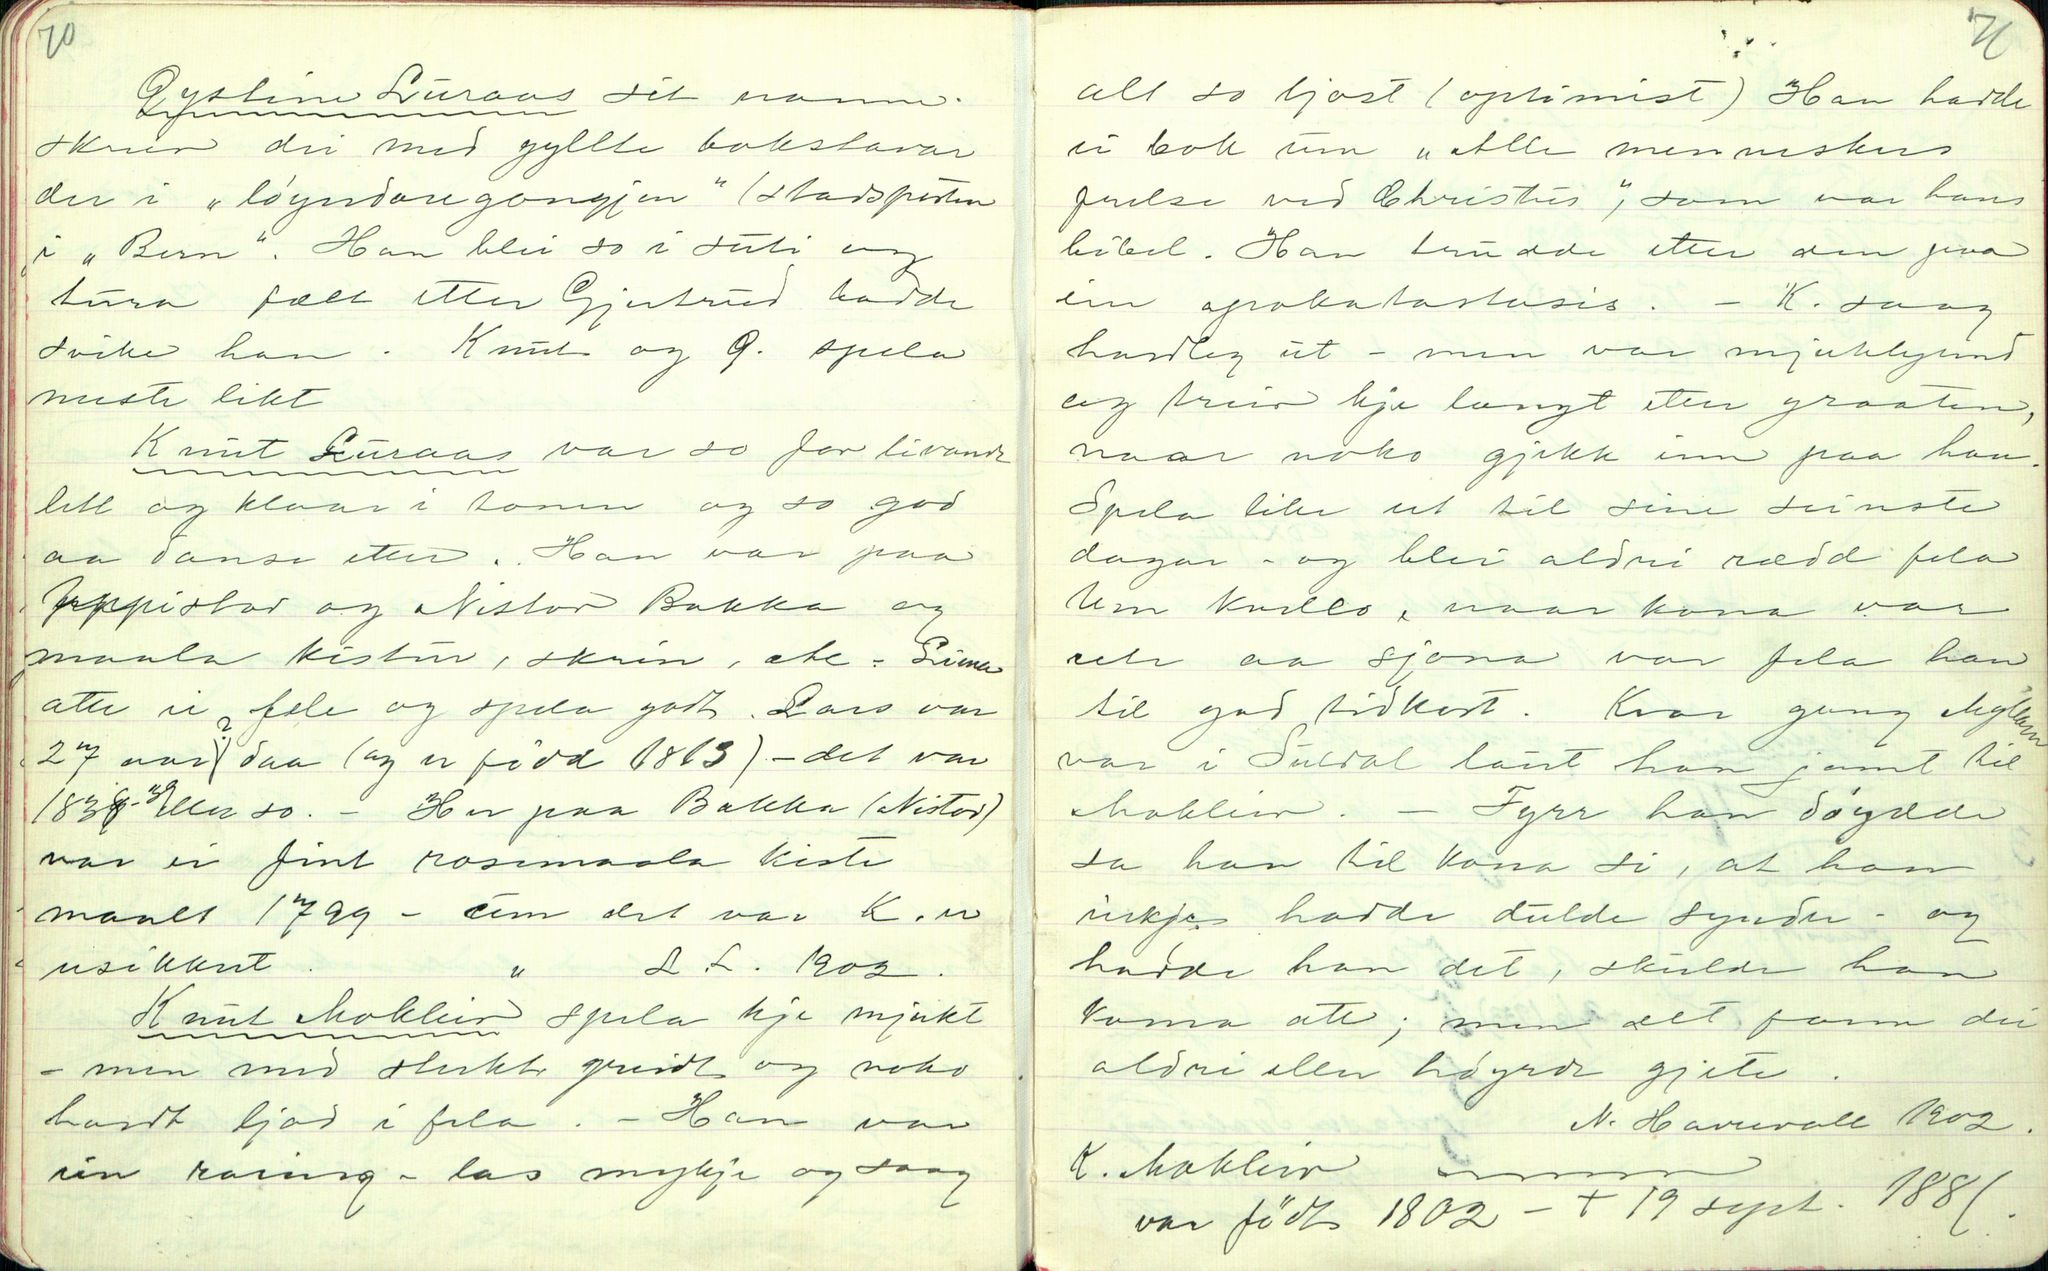 70
Øystein Luraas sit namn.
skreiv dei med gyllte bokstavar
der i „løyndaregongjen“ (stadsporten
i „Bern“. Han blei so i suti og
tura fælt etter Gjertrud hadde
svike han. Knut og Ø. spela
meste likt
Knut Luraas var so for livande
lett og klaar i tonen og so god
aa danse etter. Han var paa
Uppistod og Nistod Bakka og
maala kistur, skrin, etc.
atte ei fele og spela godt. Lars var
27 aar? daa (og er fødd 1813) – det var
1838-39 eller so. – Her paa Bakka (Nistod)
var ei fint rosemaala kiste
maalt 1799 – um det var K. er
usikkert. „ L. L. 1902.
Knut Mokleiv spela kje mjukt
– men med sterkt greidt og noko
hardt ljod i fela. – Han var
ein raring – las mykje og saag
71
alt so ljost (optimist) Han hadde
ei bok um „Alle menneskers
frelse ved Christus“, som var hans
bibel. Han trudde etter den paa
ein apokatastasis. – K. saag
hardleg ut – men var mjuklyend
og treiv kje langt etter graaten,
naar noko gjekk inn paa han.
Spela like ut til sine seinste
dagar – og blei aldri rædd fela
Um kveldo, naar kona var
ute aa sjona var fela han
til god tidkort. Kvar gong Myllarn
var i Suldal laut han jamt til
Mokleiv. – Fyrr han døydde
sa han til kona si, at han
inkje hadde dulde synder – og
hadde han det, skulde han
koma att; men det fann dei
aldri eller høyrde gjete.
N. Havrevoll 1902.
K. Mokleiv
var födt 1802 – + 19 sept. 1881.